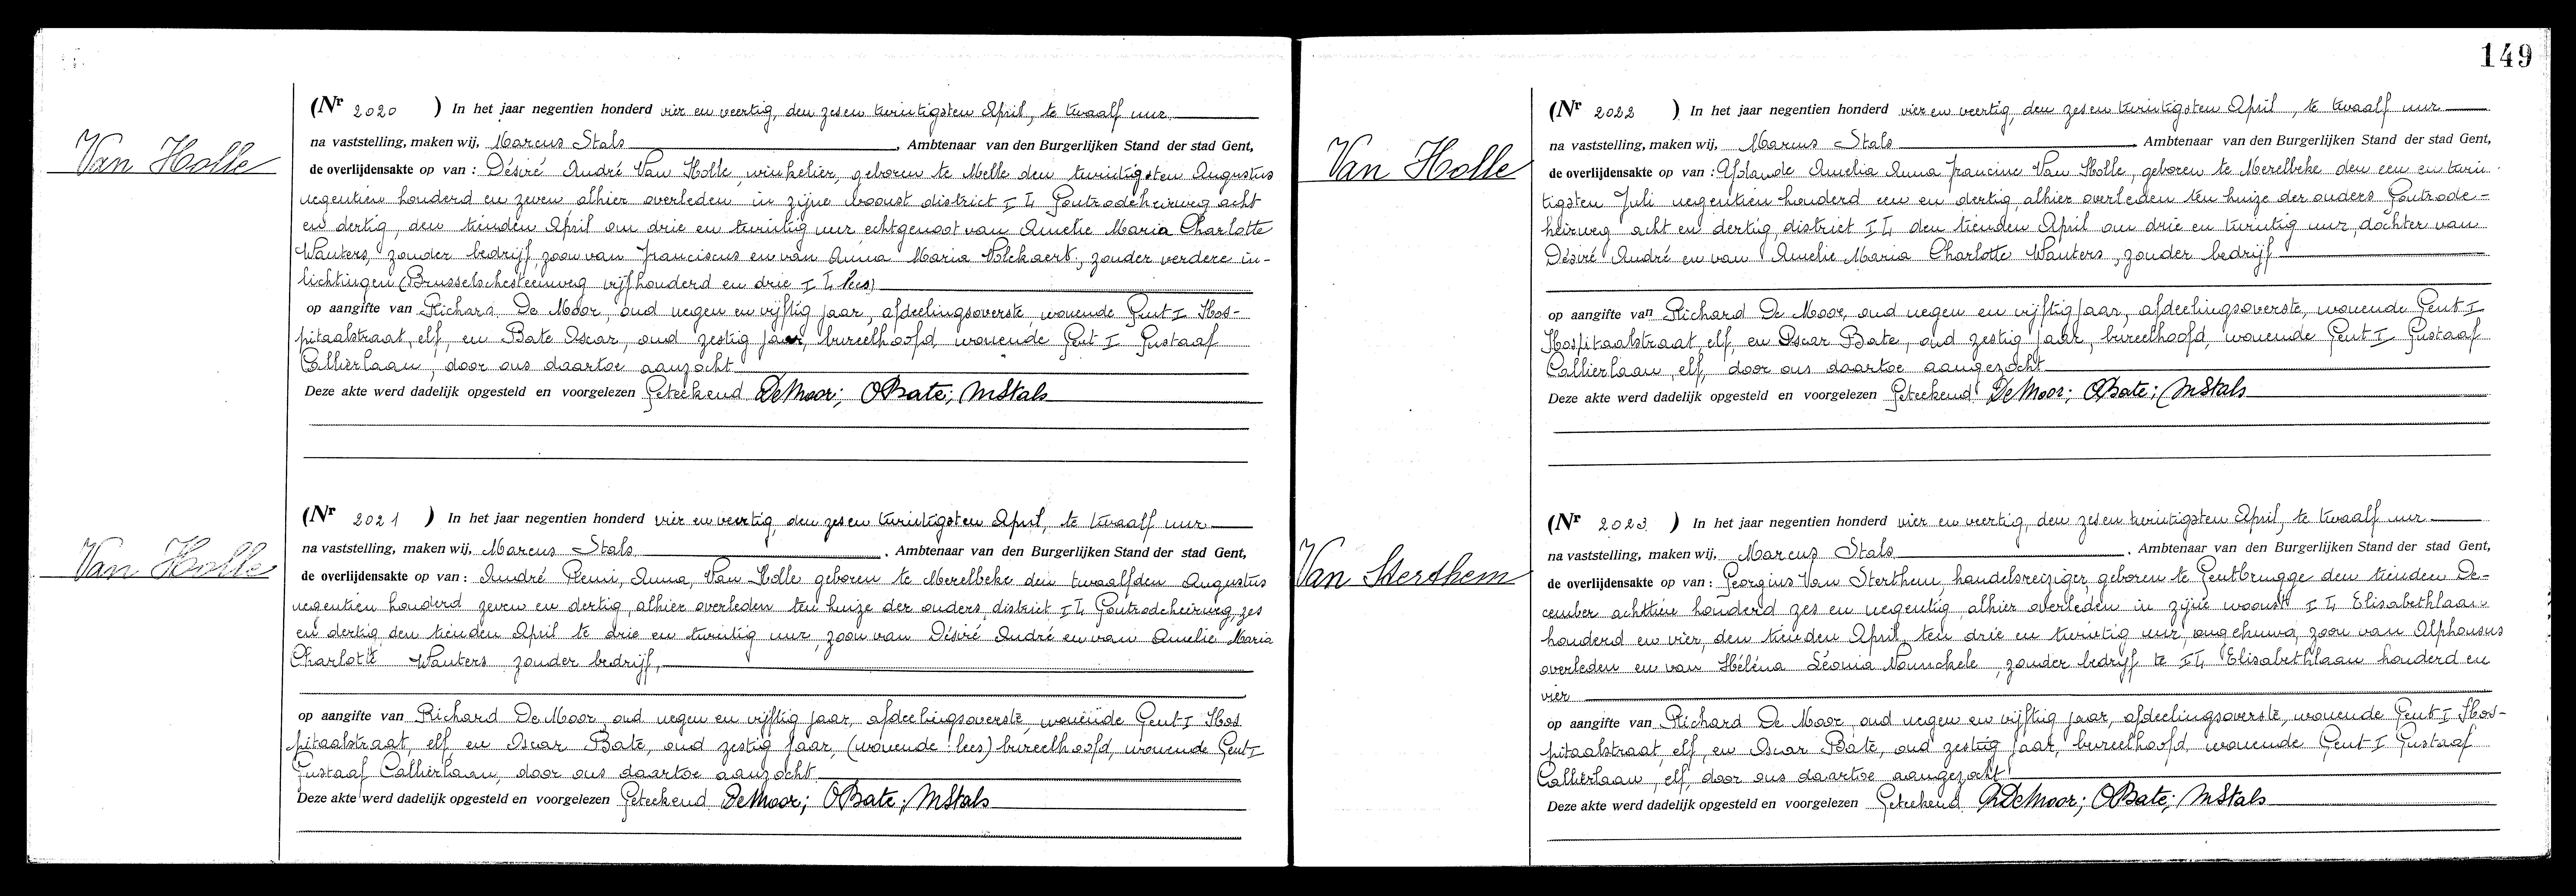 Van Holle
(Nr 2020 ) In het jaar negentien honderd vier en veertig, den zes en twintigsten April, te twaalf uur
na vaststelling, maken wij, Marcus Stals , Ambtenaar van den Burgerlijken Stand der stad Gent,
de overlijdensakte op van : Désiré André Van Holle, winkelier, geboren te Melle den twintigsten Augustus
negentien honderd en zeven alhier overleden in zijne woonst district I L Gontrodeheirweg acht
en dertig, den tienden April om drie en twintig uur, echtgenoot van Amelie Maria Charlotte
Wauters, zonder bedrijf, zoon van Franciscus en van Anna Maria Volckaert, zonder verdere in-
lichtingen (Brusselschesteenweg vijfhonderd en drie I L lees)
op aangifte van Richard De Moor, oud negen en vijftig jaar, afdeelingsoverste, wonende Gent I Hos-
pitaalstraat, elf, en Bate Oscar, oud zestig jaar, bureelhoofd wonende Gent I Gustaaf
Callierlaan, door ons daartoe aanzocht
Deze akte werd dadelijk opgesteld en voorgelezen Geteekend De Moor; OBate; MStals
Van Holle
(Nr 2021 ) In het jaar negentien honderd vier en veertig, den zes en twintigsten April, te twaalf uur
na vaststelling, maken wij, Marcus Stals , Ambtenaar van den Burgerlijken Stand der stad Gent,
de overlijdensakte op van : André Remi, Anna, Van Holle geboren te Merelbeke den twaalfden Augustus
negentien honderd zeven en dertig, alhier overleden ten huize der ouders, district I L Gontrodeheirweg, zes
en dertig den tienden April te drie en twintig uur, zoon van Désiré André en van Amelie Maria
Charlotte Wauters zonder bedrijf,
op aangifte van Richard De Moor, oud negen en vijftig jaar, afdeelingsoverste, wonende Gent I Hos
pitaalstraat, elf en Oscar Bate, oud zestig jaar, (wonende : lees) bureelhoofd, wonende Gent I
Gustaaf Callierlaan, door ons daartoe aanzocht
Deze akte werd dadelijk opgesteld en voorgelezen Geteekend De Moor; OBate; MStals
149
Van Holle
(Nr 2022 ) In het jaar negentien honderd vier en veertig, den zes en twintigsten April, te twaalf uur
na vaststelling, maken wij, Marcus Stals , Ambtenaar van den Burgerlijken Stand der stad Gent,
de overlijdensakte op van : Amelia Anna Francine Van Holle, geboren te Merelbeke den een en twin
tigsten Juli negentien honderd een en dertig, alhier overleden ten huize der ouders Gontrode-
heirweg acht en dertig, district I L den tienden April om drie en twintig uur, dochter van
Désiré André en van Amelie Maria Charlotte Wauters, zonder bedrijf
op aangifte van Richard De Moor, oud negen en vijftig jaar, afdeelingsoverste, wonende Gent I
Hospitaalstraat, elf, en Oscar Bate, oud zestig jaar, bureelhoofd, wonende Gent I Gustaaf
Callierlaan, elf, door ons daartoe aangezocht
Deze akte werd dadelijk opgesteld en voorgelezen Geteekend De Moor; OBate; MStals
Van Sterthem
(Nr 2023 ) In het jaar negentien honderd vier en veertig, den zes en twintigsten April, te twaalf uur
na vaststelling, maken wij, Marcus Stals , Ambtenaar van den Burgerlijken Stand der stad Gent,
de overlijdensakte op van : Georgius Van Sterthem, handelsreiziger, geboren te Gentbrugge den tienden De-
cember achttien honderd zes en negentig, alhier overleden in zijne woonst I L Elisabethlaan
honderd en vier, den tienden April, ten drie en twintig uur, ongehuwd, zoon van Alphonsus
overleden en van Héléna Léonia, zonder bedrijf te I L Elisabethlaan honderd en
vier
op aangifte van Richard De Moor, oud negen en vijftig jaar, afdeelingsoverste, wonende Gent I Hos-
pitaalstraat, elf, en Oscar Bate, oud zestig jaar, bureelhoofd, wonende Gent I Gustaaf
Callierlaan, elf, door ons daartoe aangezocht
Deze akte werd dadelijk opgesteld en voorgelezen Geteekend RDeMoor; OBate; MStals